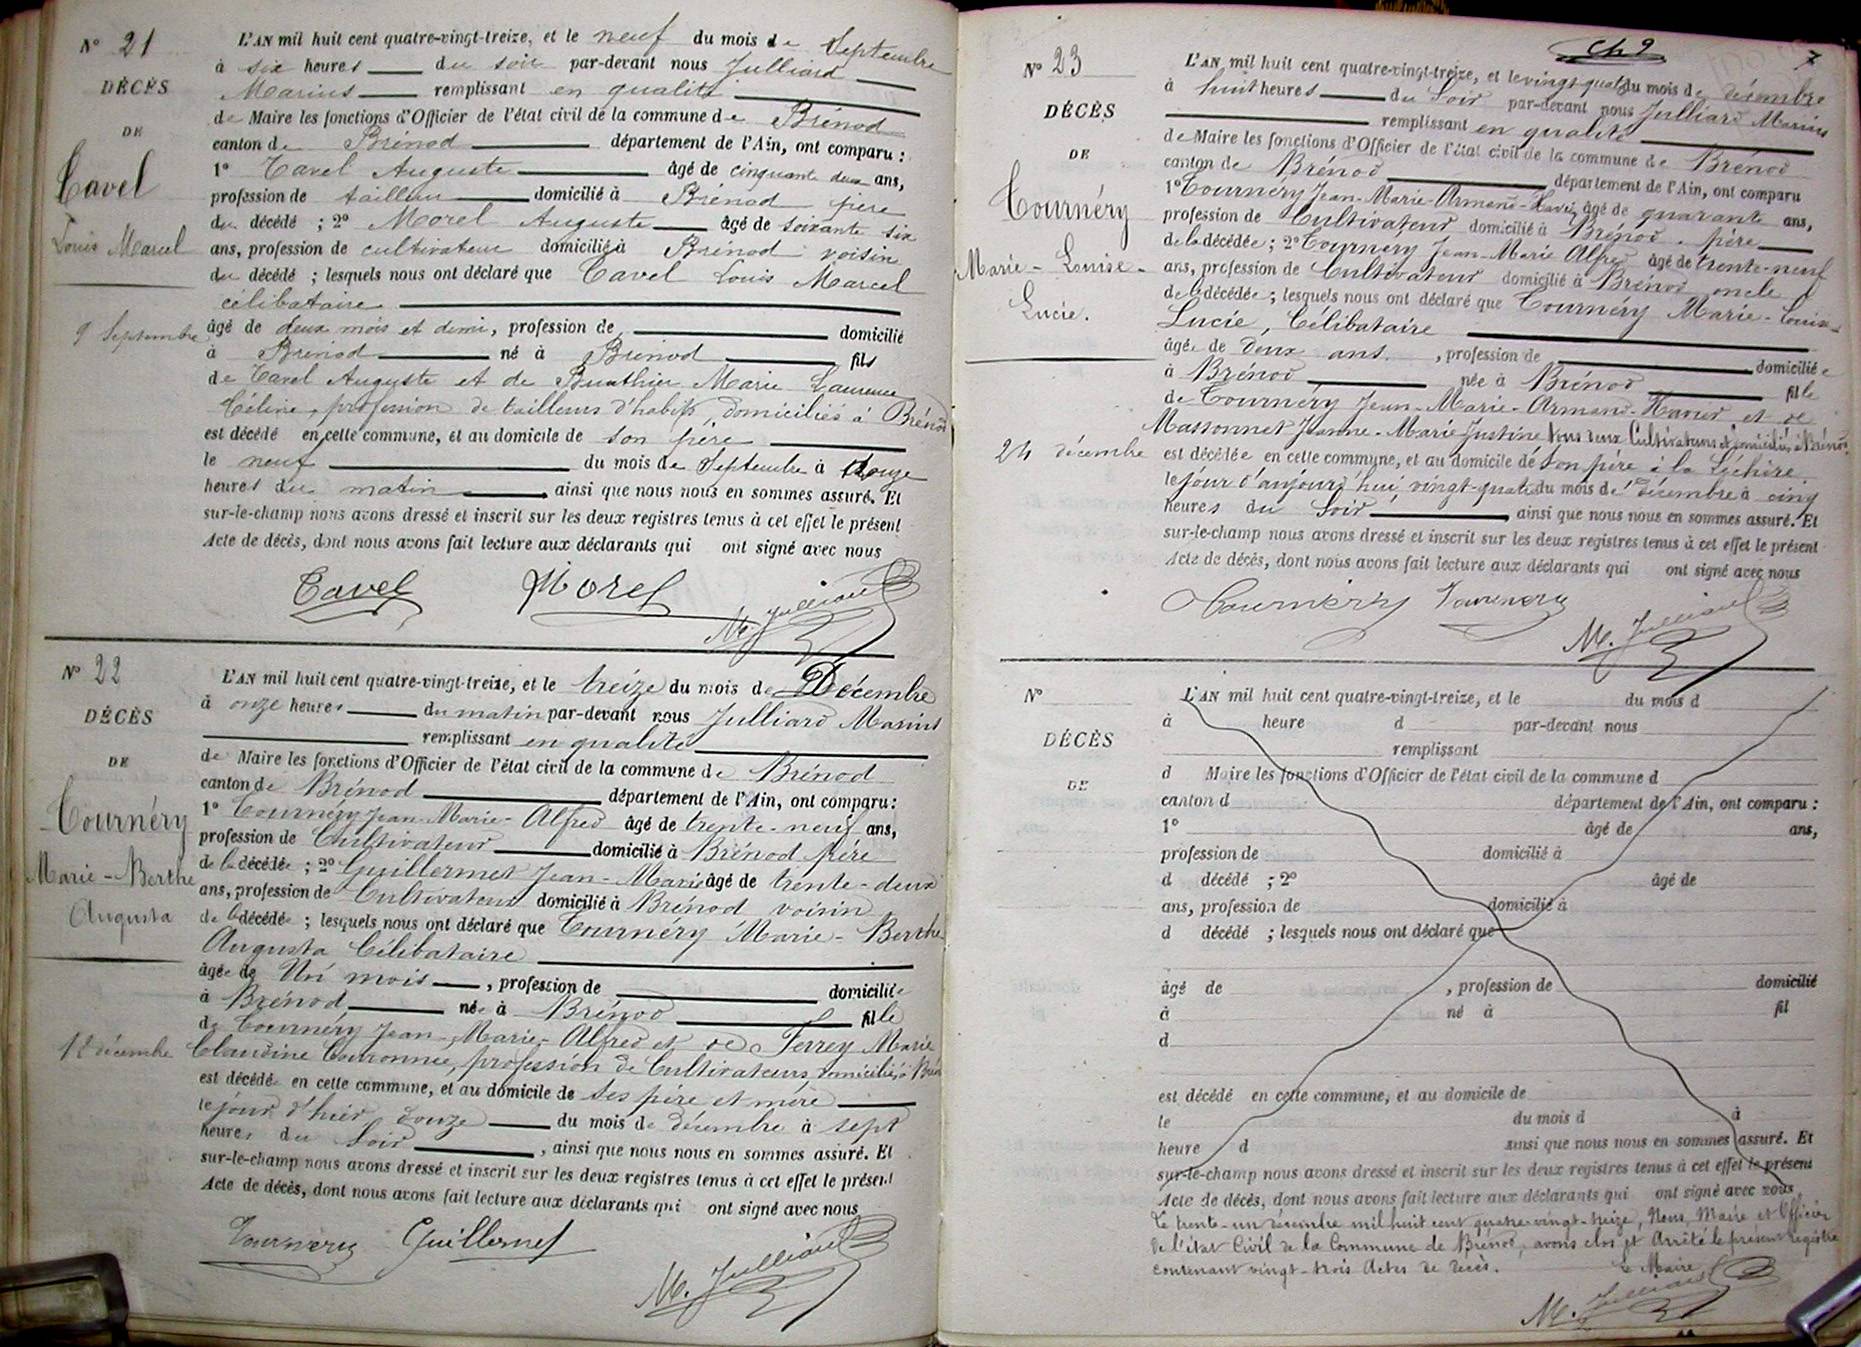 N° 21
DÉCÈS
DE
Tavel
Louis Marcel
9 Septembre
L'AN mil huit cent quatre-vingt-treize, et le neuf du mois de Septembre
à six heures du soir par-devant nous Julliard
Marius remplissant en qualité
de Maire les fonctions d'Officier de l'état civil de la commune de Brénod
canton de Brénod département de l'Ain, ont comparu :
1° Tavel Auguste âgé de cinquante deux ans,
profession de tailleur domicilié à Brénod père
du décédé ; 2° Morel Auguste âgé de soixante six
ans, profession de cultivateur domicilié à Brénod voisin
du décédé ; lesquels nous ont déclaré que Tavel Louis Marcel
célibataire
âgé de deux mois et demi, profession de domicilié
à Brénod né à Brénod fils
de Tavel Auguste et de Marie Laurence
Céline, profession de tailleurs d'habits, domiciliés à Brénod
est décédé en cette commune, et au domicile de son père
le neuf du mois de Septembre à onze
heures du matin ainsi que nous nous en sommes assuré. Et
sur-le-champ nous avons dressé et inscrit sur les deux registres tenus à cet effet le présent
Acte de décès, dont nous avons fait lecture aux déclarants qui ont signé avec nous
Tavel Morel M. Julliard
N° 22
DÉCÈS
DE
Tournéry
Marie-Berthe
Augusta
12 décembre
L'AN mil huit cent quatre-vingt-treize, et le treize du mois de Décembre
à onze heures du matin par-devant nous Julliard Marius
remplissant en qualité
de Maire les fonctions d'Officier de l'état civil de la commune de Brénod
canton de Brénod département de l'Ain, ont comparu :
1° Tournéry Jean-Marie-Alfred âgé de trente-neuf ans,
profession de Cultivateur domicilié à Brénod père
de la décédée ; 2° Guillermet Jean-Marie âgé de trente-deux
ans, profession de Cultivateur domicilié à Brénod voisin
de la décédée ; lesquels nous ont déclaré que Tournéry Marie-Berthe
Augusta Célibataire
âgée de Un mois, profession de domiciliée
à Brénod née à Brénod fille
de Tournéry Jean-Marie-Alfred et de Ferrey Marie
Claudine Couronnée, profession de Cultivateurs domiciliés à Brénod
est décédée en cette commune, et au domicile de ses père et mère
le jour d'hier douze du mois de décembre à sept
heures du Soir, ainsi que nous nous en sommes assuré. Et
sur-le-champ nous avons dressé et inscrit sur les deux registres tenus à cet effet le présent
Acte de décès, dont nous avons fait lecture aux déclarants qui ont signé avec nous
Tournery Guillermet
M. Julliard
7
N° 23
DÉCÈS
DE
Tournéry
Marie-Louise-
Lucie.
24 décembre
L'AN mil huit cent quatre-vingt-treize, et le vingt-quatre du mois de décembre
à huit heures du Soir par-devant nous Julliard Marius
remplissant en qualité
de Maire les fonctions d'Officier de l'état civil de la commune de Brénod
canton de Brénod département de l'Ain, ont comparu
1° Tournéry Jean-Marie-Armand-Xavier âgé de quarante ans,
profession de Cultivateur domicilié à Brénod, père
de la décédée ; 2° Tournéry Jean-Marie Alfred âgé de trente-neuf
ans, profession de Cultivateur domicilié à Brénod oncle
de la décédée ; lesquels nous ont déclaré que Tournéry Marie-Louise-
Lucie, Célibataire
âgée de Deux ans, profession de domiciliée
à Brénod née à Brénod fille
de Tournéry Jean-Marie-Armand-Xavier et de
Massonnet Jeanne-Marie Justine tous deux Cultivateurs et domiciliés à Brénod
est décédée en cette commune, et au domicile de son père à la
le jour d'aujourd'hui, vingt-quatre du mois de décembre à cinq
heures du Soir ainsi que nous nous en sommes assuré. Et
sur-le-champ nous avons dressé et inscrit sur les deux registres tenus à cet effet le présent
Acte de décès, dont nous avons fait lecture aux déclarants qui ont signé avec nous
Tournéry Tournery
M. Julliard
N°
DÉCÈS
DE
L'AN mil huit cent quatre-vingt-treize, et le du mois d
à heure d par-devant nous
remplissant
d Maire les fonctions d'Officier de l'état civil de la commune d
canton d département de l'Ain, ont comparu :
1° âgé de ans,
profession de domicilié à
d décédé ; 2° âgé de
ans, profession de domicilié à
d décédé ; lesquels nous ont déclaré que
âgé de , profession de domicilié
à né à fil
d
est décédé en cette commune, et au domicile de
le du mois d à
heure d ainsi que nous nous en sommes assuré. Et
sur-le-champ nous avons dressé et inscrit sur les deux registres tenus à cet effet le présent
Acte de décès, dont nous avons fait lecture aux déclarants qui ont signé avec nous
Le trente-un décembre mil huit cent quatre-vingt-treize, Nous, Maire et Officier
de l'état Civil de la Commune de Brénod, avons clos et Arrêté le présent registre
contenant vingt-trois Actes de décès.
Le Maire
M. Julliard